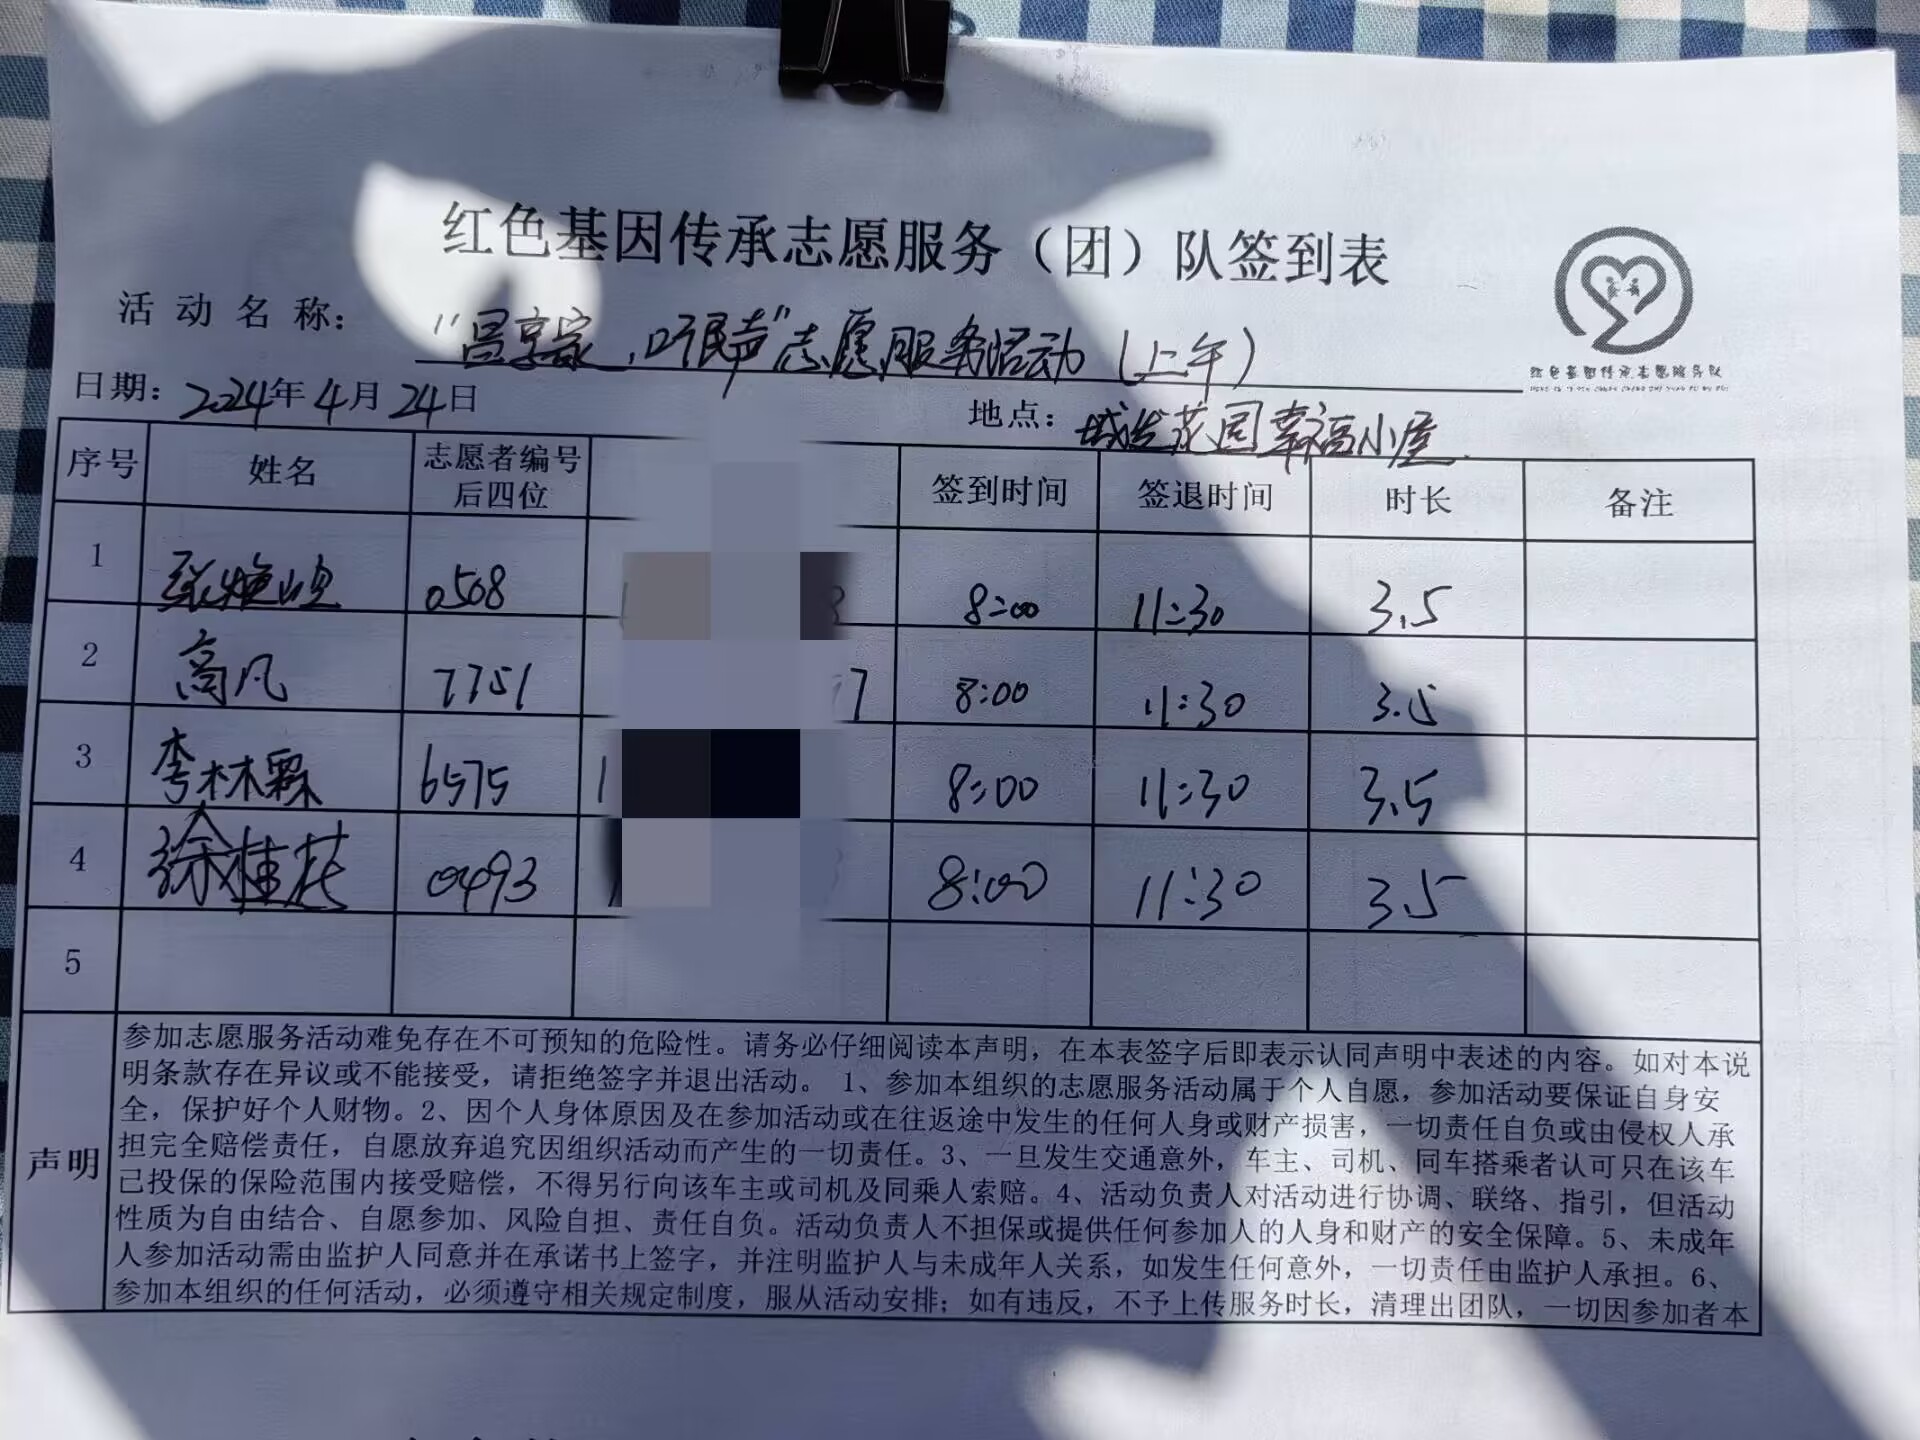 红色基因传承志愿服务（团）队签到表
活动名称： “昌享家，听民声”志愿服务活动（上午）
日期：2024年4月24日 地点：城发花园幸福小屋
红色基因传承志愿服务队
序号 姓名 志愿者编号后四位 签到时间 签退时间 时长 备注
1 0508 8:00 11:30 3.5
2 高凡 7751 8:00 11:30 3.5
3 李林霖 6575 8:00 11:30 3.5
4 徐桂花 0493 8:00 11:30 3.5
5
声明
参加志愿服务活动难免存在不可预知的危险性。请务必仔细阅读本声明，在本表签字后即表示认同声明中表述的内容。如对本说
明条款存在异议或不能接受，请拒绝签字并退出活动。 1、参加本组织的志愿服务活动属于个人自愿，参加活动要保证自身安
全，保护好个人财物。2、因个人身体原因及在参加活动或在往返途中发生的任何人身或财产损害，一切责任自负或由侵权人承
担完全赔偿责任，自愿放弃追究因组织活动而产生的一切责任。3、一旦发生交通意外，车主、司机、同车搭乘者认可只在该车
己投保的保险范围内接受赔偿，不得另行向该车主或司机及同乘人索赔。4、活动负责人对活动进行协调、联络、指引，但活动
性质为自由结合、自愿参加、风险自担、责任自负。活动负责人不担保或提供任何参加人的人身和财产的安全保障。5、未成年
人参加活动需由监护人同意并在承诺书上签字，并注明监护人与未成年人关系，如发生任何意外，一切责任由监护人承担。6、
参加本组织的任何活动，必须遵守相关规定制度，服从活动安排；如有违反，不予上传服务时长，清理出团队，一切因参加者本